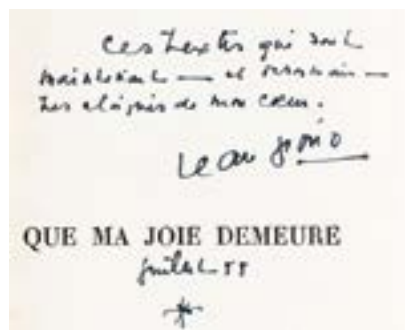 Ces textes qui sont
maintenant — et
très éloignés de mon cœur.
Jean Giono
QUE MA JOIE DEMEURE
juillet 58